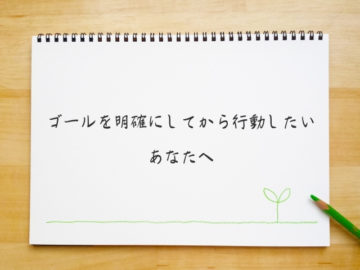 ゴールを明確にしてから行動したい
あなたへ